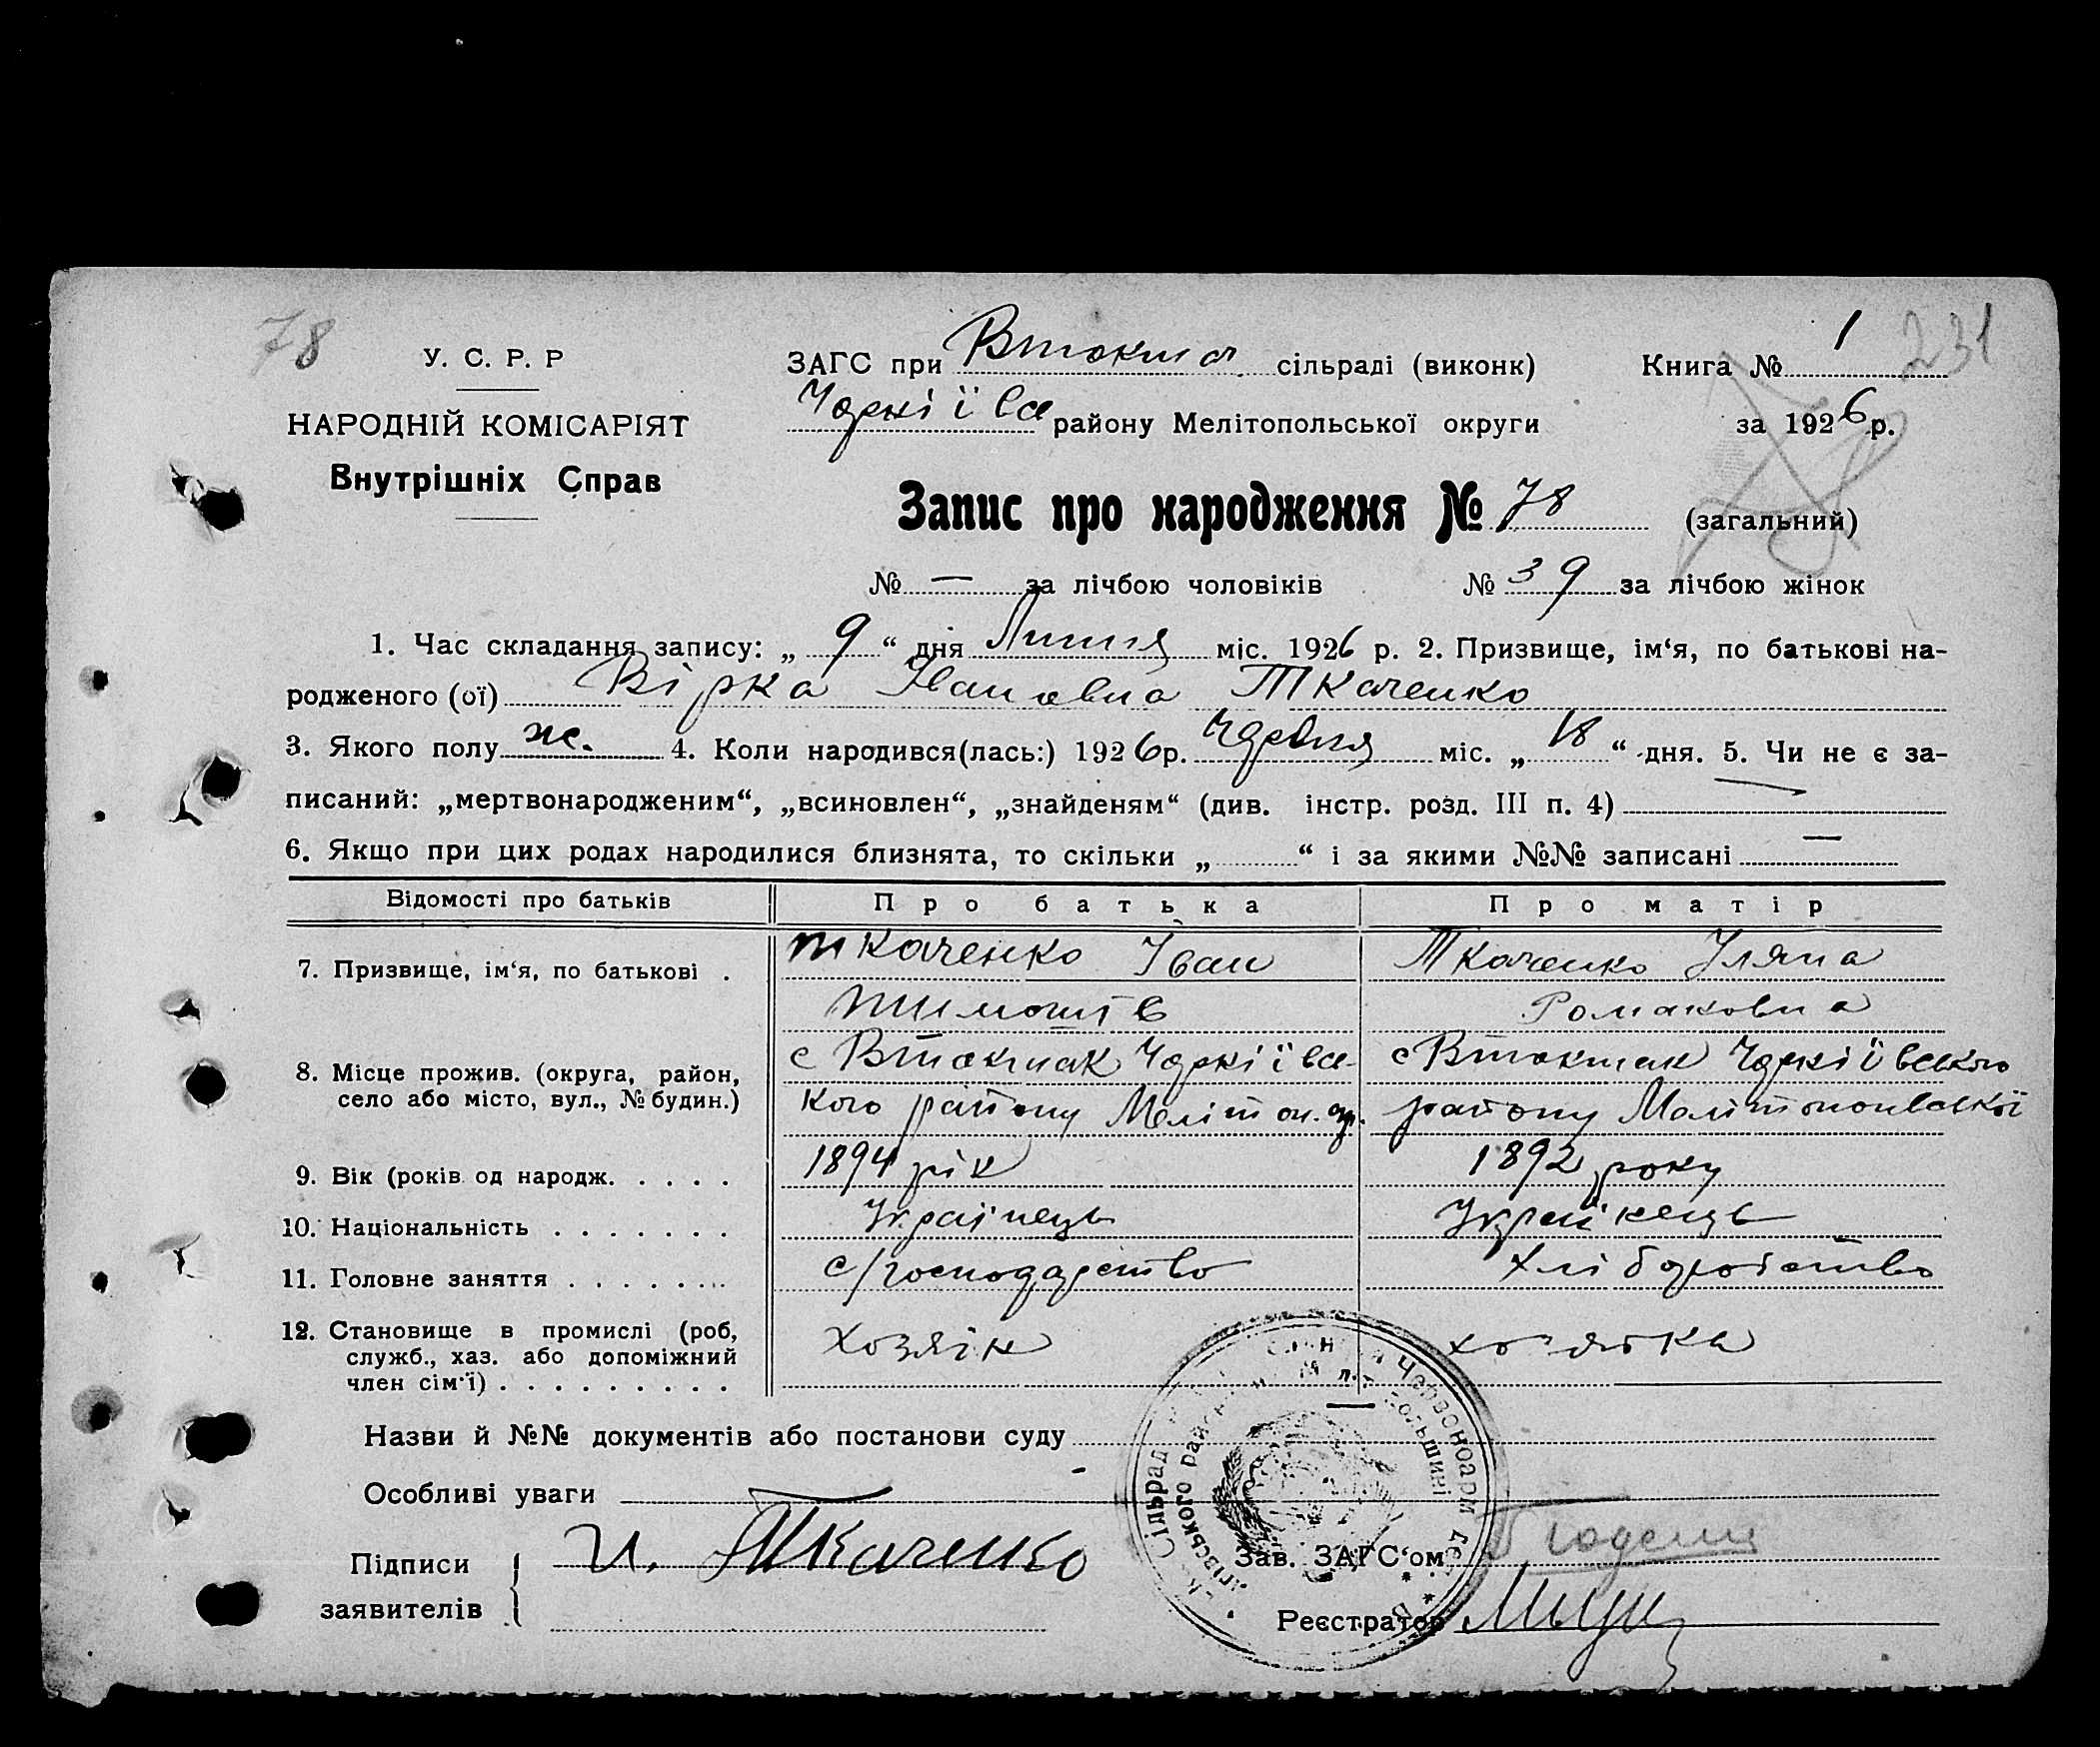 78
У. С. Р. Р
ЗАГС при Втокма. сільраді (виконк)
Книга № 1
231
НАРОДНІЙ КОМІСАРІЯТ
Чернїівс району Мелітопольської округи
за 1926 р.
Внутрішніх Справ
Запис про народження № 78 (загальний)
№ — за лічбою чоловіків № 39 за лічбою жінок
1. Час складання запису: „ 9 “ дня Липня міс. 1926 р. 2. Призвище, ім‘я, по батькові на-
родженого (ої) Вірка Івановна Ткаченко
3. Якого полу ж. 4. Коли народився(лась:) 1926 р. Червня міс. „ 18 “ дня. 5. Чи не є за-
писаний: „мертвонародженим“, „всиновлен“, „знайденям“ (див. інстр. розд. III п. 4) —
6. Якщо при цих родах народилися близнята, то скільки „ “ і за якими №№ записані —
Відомості про батьків Про батька Про матір
7. Призвище, ім‘я, по батькові . Ткаченко Іван Ткаченко Уляна
Тимошів Романовна
8. Місце прожив. (округа, район, с Втокмак с Втокмак
село або місто, вул., № будин.) кого району Меліт. ок. району
9. Вік (років од народж. . . . . 1894 рік 1892 року
10. Національність . . . . . . . Українець Українець
11. Головне заняття . . . . . . . с/господарство хліборобство
12. Становище в промислі (роб, хозяін хозяйка
служб., хаз. або допоміжний
член сім‘ї) . . . . . . . . .
Назви й №№ документів або постанови суду —
Особливі уваги —
Підписи И. Ткаченко
Зав. ЗАГС‘ом
заявителів
Реєстратор
Сільрад Червоноарм
ського район